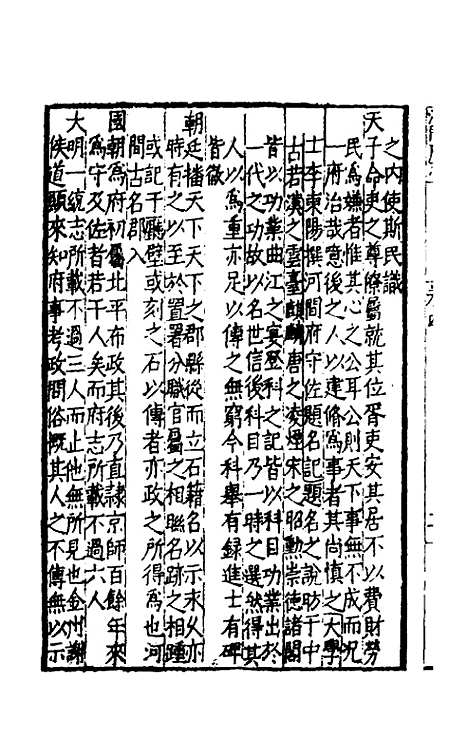 之内使斯民識
天子命吏之尊僚屬就其位胥吏安其居不以費財勞
民為嫌者惟其心之公耳公則天下事無不成而况
一府治哉意後之人以建脩為事者其尚慎之大學
士李東陽撰河間府守佐題名記題名之說昉于中
古若漢之雲臺麒麟唐之凌煙宋之昭勳崇德諸閣
皆以功業曲江之宴登科之記皆以科目功業出於
一代之功故以名世信後科目乃一時之選然得其
人以為重亦足以傳之無窮今科舉有録進士有碑
皆倣
朝廷播天下天下之郡縣從而立石籍名以示来久亦
時有之以至於置署分職官屬之相聮名跡之相踵
或記于廳壁或刻之石以傳者亦政之所得為也河
間古名郡入
國朝為府初屬北平布政其後乃直隷京師百餘年來
為守及佐者若干人矣而府志所載不過六人
大明一統志所載不過三人而止他無所見也金州謝
侯道顯來知府事考政問俗慨其人之不傳無以示